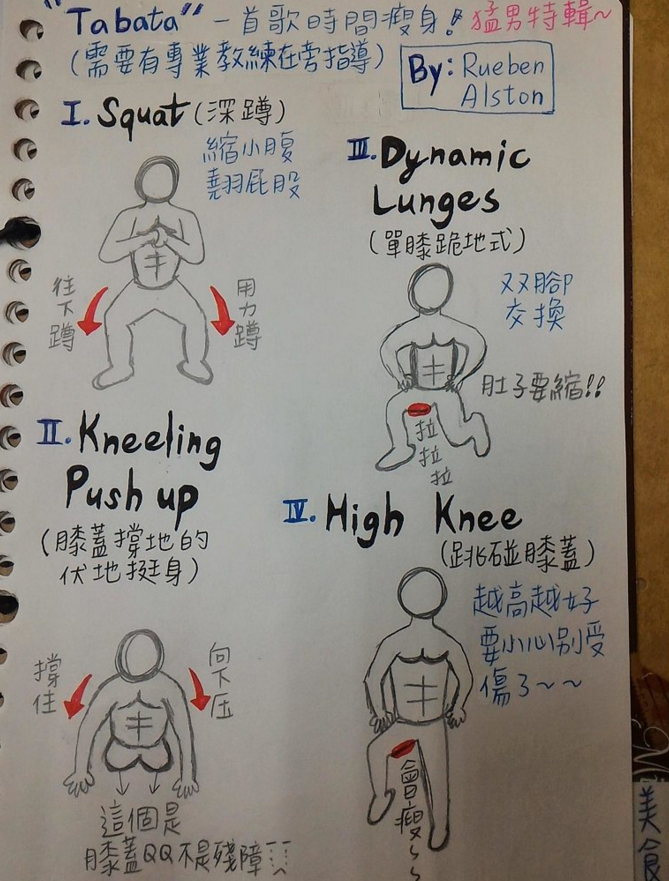 "Tabata" 一首歌時間瘦身! 猛男特輯~
(需要有專業教練在旁指導)
By: Rueben
Alston
I. Squat (深蹲)
縮小腹
翹屁股
往下蹲
用力蹲
II. Kneeling
Push up
(膝蓋撐地的
伏地挺身)
撐住
向下压
這個是
膝蓋QQ不是殘障
III. Dynamic
Lunges
(單膝跪地式)
双腳
交換
肚子要縮!!
拉
拉
拉
IV. High Knee
(跳碰膝蓋)
越高越好
要小心別受
傷了~~
會瘦~~
美食